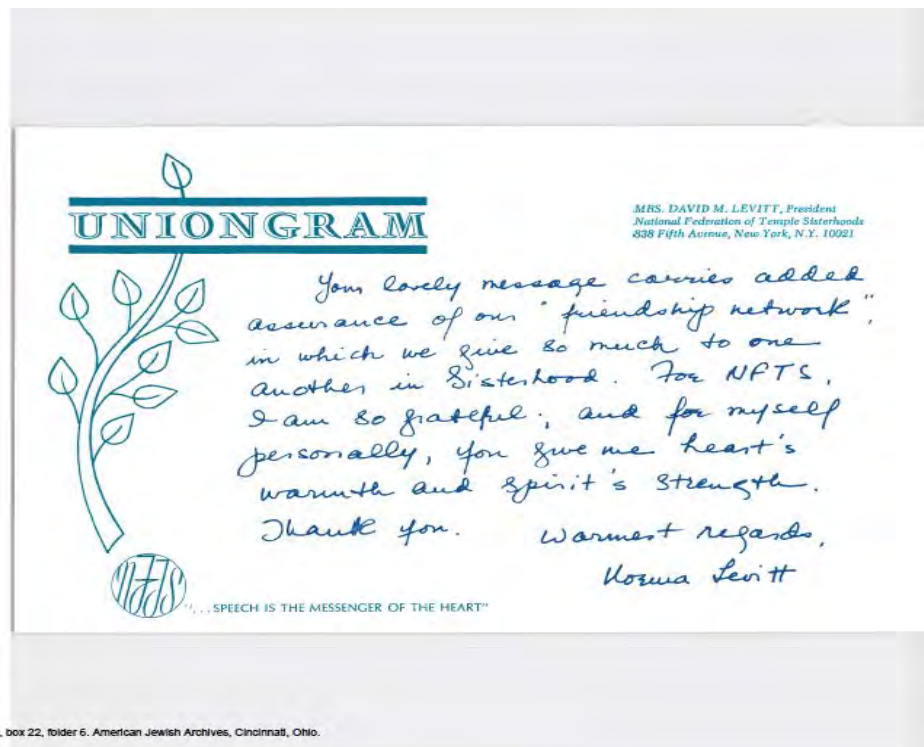 UNIONGRAM
MRS. DAVID M. LEVITT, President
National Federation of Temple Sisterhoods
838 Fifth Avenue, New York, N.Y. 10021
Your lovely message carries added
assurance of our "friendship network",
in which we give so much to one
another in Sisterhood. For NFTS,
I am so grateful; and for myself
personally, you give me heart's
warmth and spirit's strength.
Thank you. Warmest regards,
Norma Levitt
nfts
"...SPEECH IS THE MESSENGER OF THE HEART"
, box 22, folder 6. American Jewish Archives, Cincinnati, Ohio.